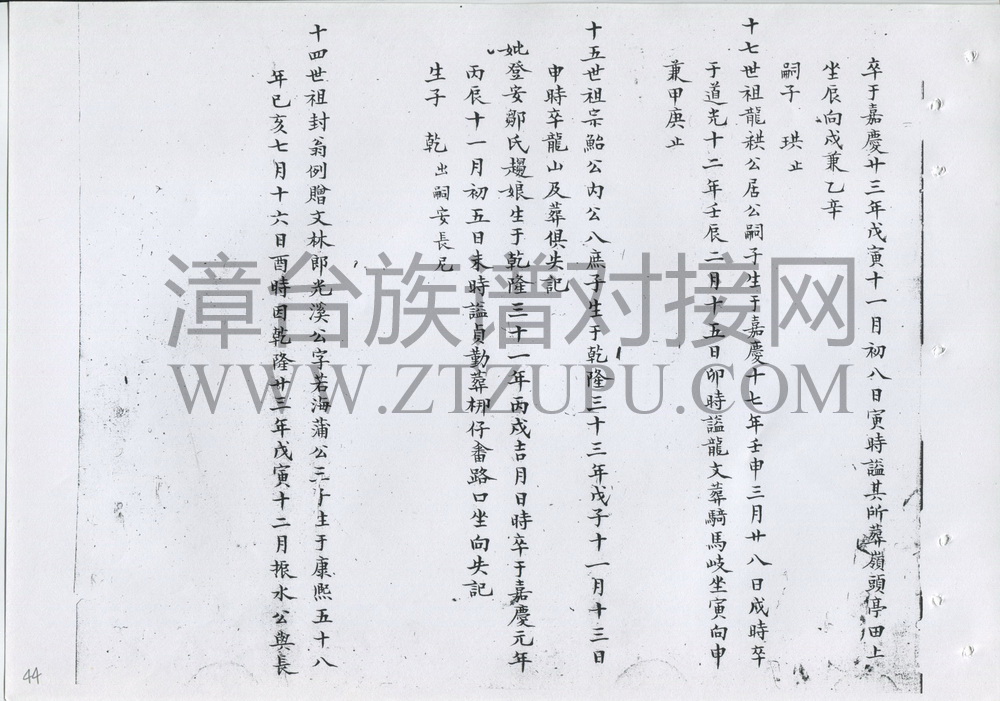 卒于嘉慶廿三年戊寅十一月初八日寅時謚其所葬嶺頭停田上
坐辰向戌兼乙辛
嗣子 珙止
十七世祖龍 公居公嗣子生于嘉慶十七年壬申三月廿八日戌時卒
于道光十二年壬辰二月十五日卯時謚龍文葬騎馬岐坐寅向申
兼甲庚止
十五世祖宗鮐公內公八庶子生于乾隆三十三年戊子十一月十三日
申時卒龍山及葬俱失記
妣登安鄒氏 娘生于乾隆三十一年丙戌吉月日時卒于嘉慶元年
丙辰十一月初五日未時謚貞勤葬 仔畬路口坐向失記
生子 乾出嗣安長兄
十四世祖封翁例贈文林郎光溪公字若海蒲公三子生于康熙五十八
年已亥七月十六日酉時因乾隆廿三年戊寅十二月振水公與長
漳台族谱对接网
WWW.ZTZUPU.COM
44